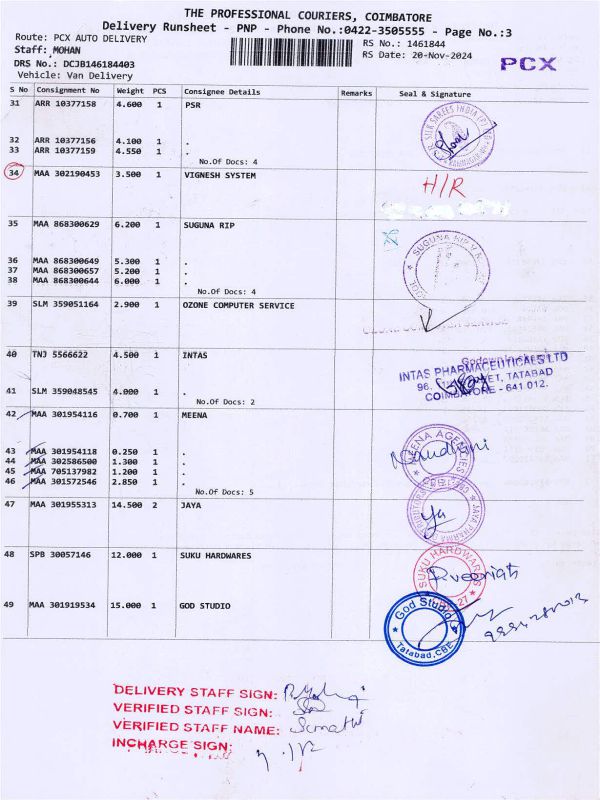 THE PROFESSIONAL COURIERS, COIMBATORE
Delivery Runsheet - PNP - Phone No.:0422-3505555 - Page No.:3
Route: PCX AUTO DELIVERY
RS No.: 1461844
Staff: MOHAN
RS Date: 20-Nov-2024
DRS No.: DCJB146184403
PCX
Vehicle: Van Delivery
S No Consignment No Weight PCS Consignee Details Remarks Seal & Signature
31 ARR 10377158 4.600 1 PSR
32 ARR 10377156 4.100 1 .
33 ARR 10377159 4.550 1 .
No.Of Docs: 4
34 MAA 302190453 3.500 1 VIGNESH SYSTEM H/R
35 MAA 868300629 6.200 1 SUGUNA RIP
SUGUNA RIP
36 MAA 868300649 5.300 1 .
37 MAA 868300657 5.200 1 .
38 MAA 868300644 6.000 1 .
No.Of Docs: 4
39 SLM 359051164 2.900 1 OZONE COMPUTER SERVICE
40 TNJ 5566622 4.500 1 INTAS
INTAS PHARMACEUTICALS LTD
TATABAD
COIMBATORE - 641 012.
41 SLM 359048545 4.000 1 .
No.Of Docs: 2
42 MAA 301954116 0.700 1 MEENA
MEENA AGENCIES
43 MAA 301954118 0.250 1 .
44 MAA 302586500 1.300 1 .
45 MAA 705137982 1.200 1 .
46 MAA 301572546 2.850 1 .
No.Of Docs: 5
47 MAA 301955313 14.500 2 JAYA
JAYA PHARMA
48 SPB 30057146 12.000 1 SUKU HARDWARES
SUKU HARDWARES
49 MAA 301919534 15.000 1 GOD STUDIO
God Studio
Tatabad, CBE
DELIVERY STAFF SIGN:
VERIFIED STAFF SIGN:
VERIFIED STAFF NAME: Sumathi
INCHARGE SIGN: